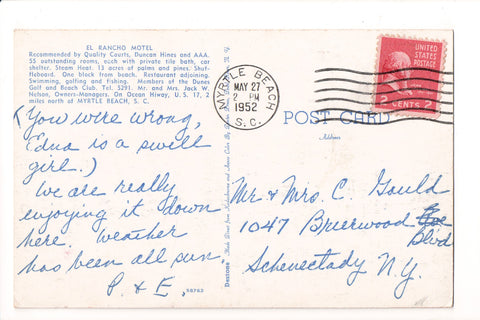 EL RANCHO MOTEL
Recommended by Quality Courts, Duncan Hines and AAA.
55 outstanding rooms, each with private tile bath, car
shelter. Steam Heat. 13 acres of palms and pines; Shuf-
fleboard. One block from beach. Restaurant adjoining.
Swimming, golfing and fishing. Members of the Dunes
Golf and Beach Club. Tel. 5291. Mr. and Mrs. Jack W.
Nelson, Owners-Managers. On Ocean Hiway, U. S. 17, 2
miles north of MYRTLE BEACH, S. C.
(You were wrong,
Edna is a swell
girl.)
We are really
enjoying it down
here. Weather
has been all sun.
P. & E.
50763
MYRTLE BEACH
MAY 27
2 PM
1952
S.C.
UNITED
STATES
POSTAGE
2 CENTS 2
POST CARD
Address
Mr & Mrs. C. Gould
1047 Brierwood
Blvd
Schenectady N.Y.